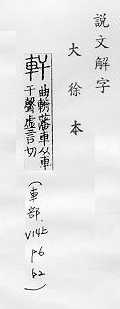 說文解字
大徐本
軒
曲輈藩車从車
干聲虛言切
(車部.
V14上
p6
b2)